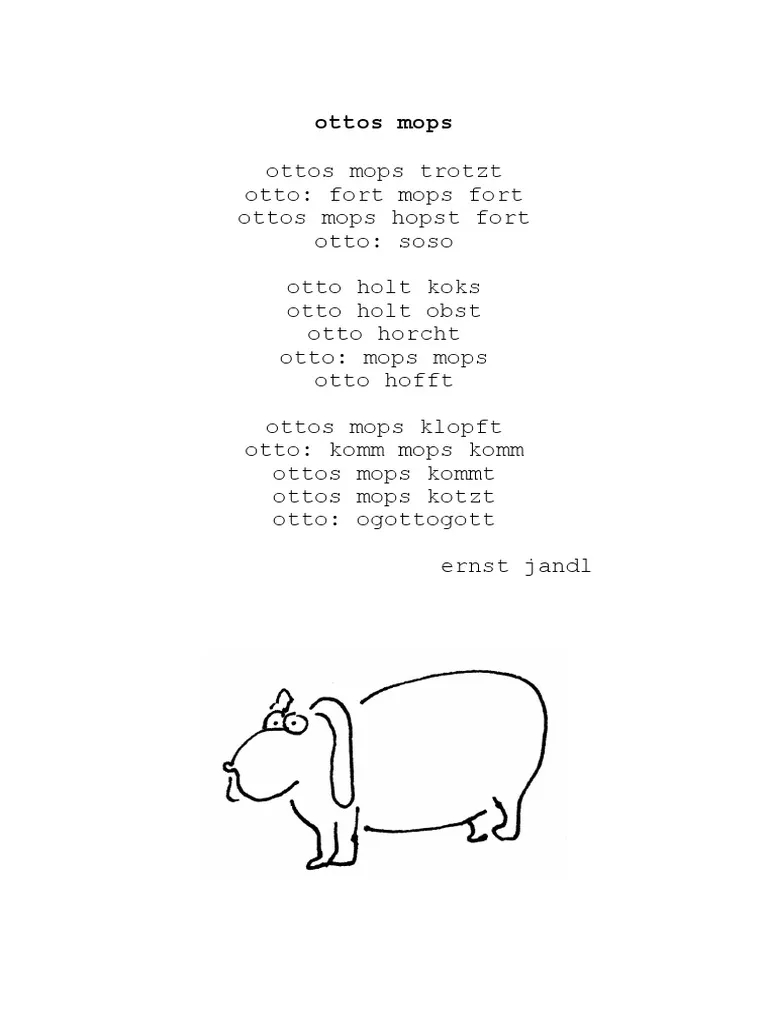 ottos mops
ottos mops trotzt
otto: fort mops fort
ottos mops hopst fort
otto: soso
otto holt koks
otto holt obst
otto horcht
otto: mops mops
otto hofft
ottos mops klopft
otto: komm mops komm
ottos mops kommt
ottos mops kotzt
otto: ogottogott
ernst jandl